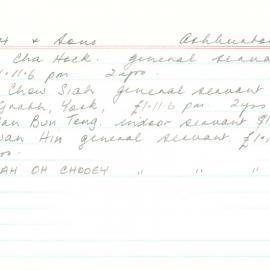 & Sons Ashburton
Cha Hock. general servant
1.11.6 pm 2 yrs.
Chew Siah general servant
York, £1.11.6 pm 2 yrs
Bun Teng. indoor servant. £1
Hin general servant. £1.
AH OH CHOOEY " " "